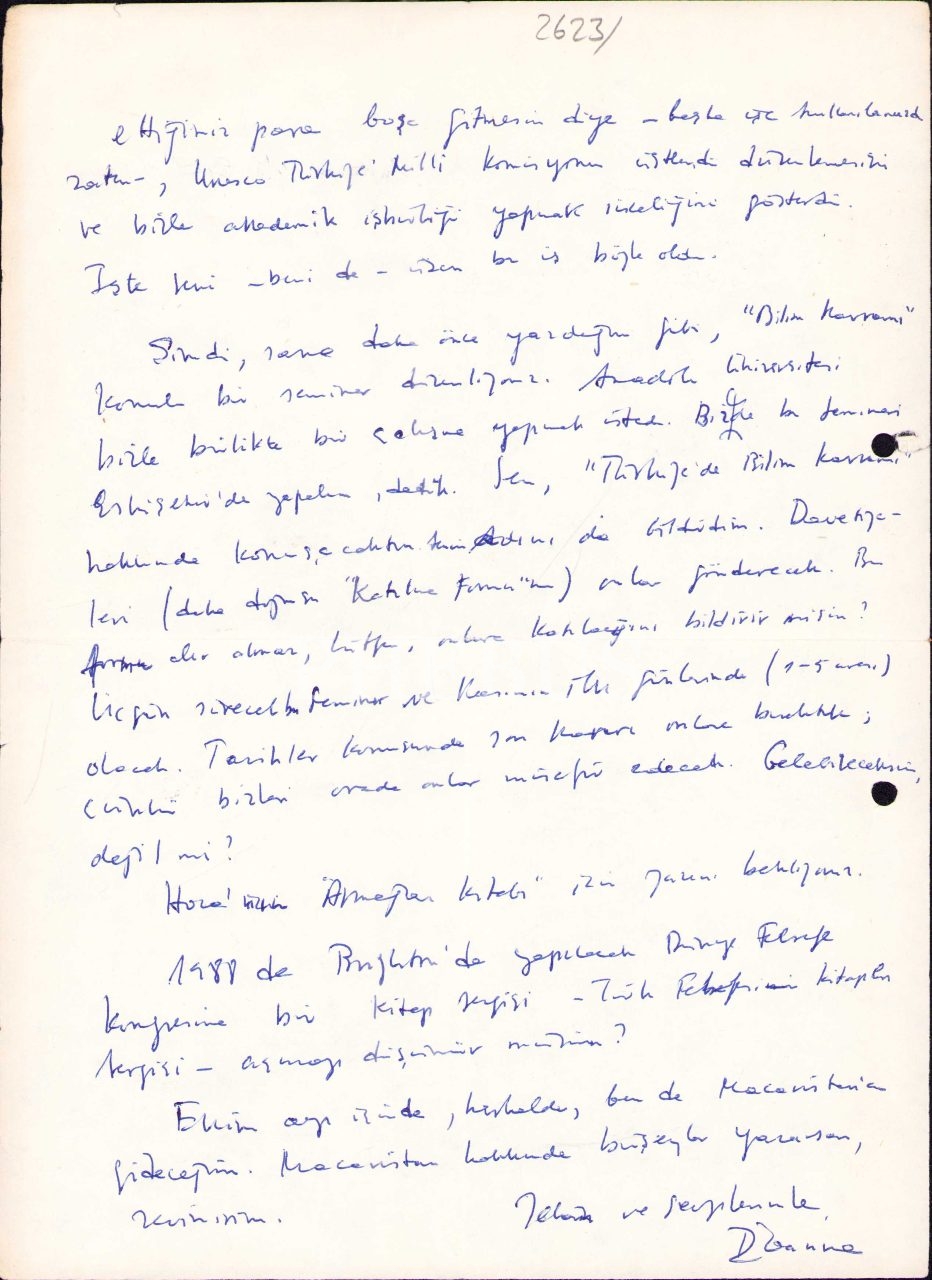 2623/
ettiğiniz para boşa gitmesin diye – başka işe kullanılamazdı
zaten –, Unesco Türkiye Milli Komisyonu üstlendi düzenlemesini
ve bizle akademik işbirliği yapmak inceliğini gösterdi.
İşte seni – beni de – üzen bu iş böyle oldu.
Şimdi, sana daha önce yazdığım gibi, "Bilim Kavramı"
konulu bir seminer düzenliyoruz. Anadolu Üniversitesi
bizle birlikte bir çalışma yapmak istedi. Biz de bu semineri
Eskişehir'de yapalım, dedik. Sen, "Türkiye'de Bilim Kavramı"
hakkında konuşacaktın. Senin adını da bildirdim. Davetiye-
leri (daha doğrusu "Katılma Formu"nu) onlar gönderecek. Bu
formu alır almaz, lütfen, onlara katılacağını bildirir misin?
Üç gün sürecek bu Seminer ve Kasımın ilk günlerinde (1-5 arası)
olacak. Tarihler konusunda son kararı onlara bıraktık;
çünkü bizleri orada onlar misafir edecek. Gelebileceksin,
değil mi?
Hoca'nın "Armağan Kitabı" için yazını bekliyoruz.
1988 de Brighton'da yapılacak Dünya Felsefe
Kongresine bir kitap sergisi – Türk Felsefesinin kitapları
sergisi – açmayı düşünür müsün?
Ekim ayı içinde, herhalde, ben de Macaristan'a
gideceğim. Macaristan hakkında birşeyler yazarsan,
sevinirim.
Selam ve sevgilerimle,
İoanna